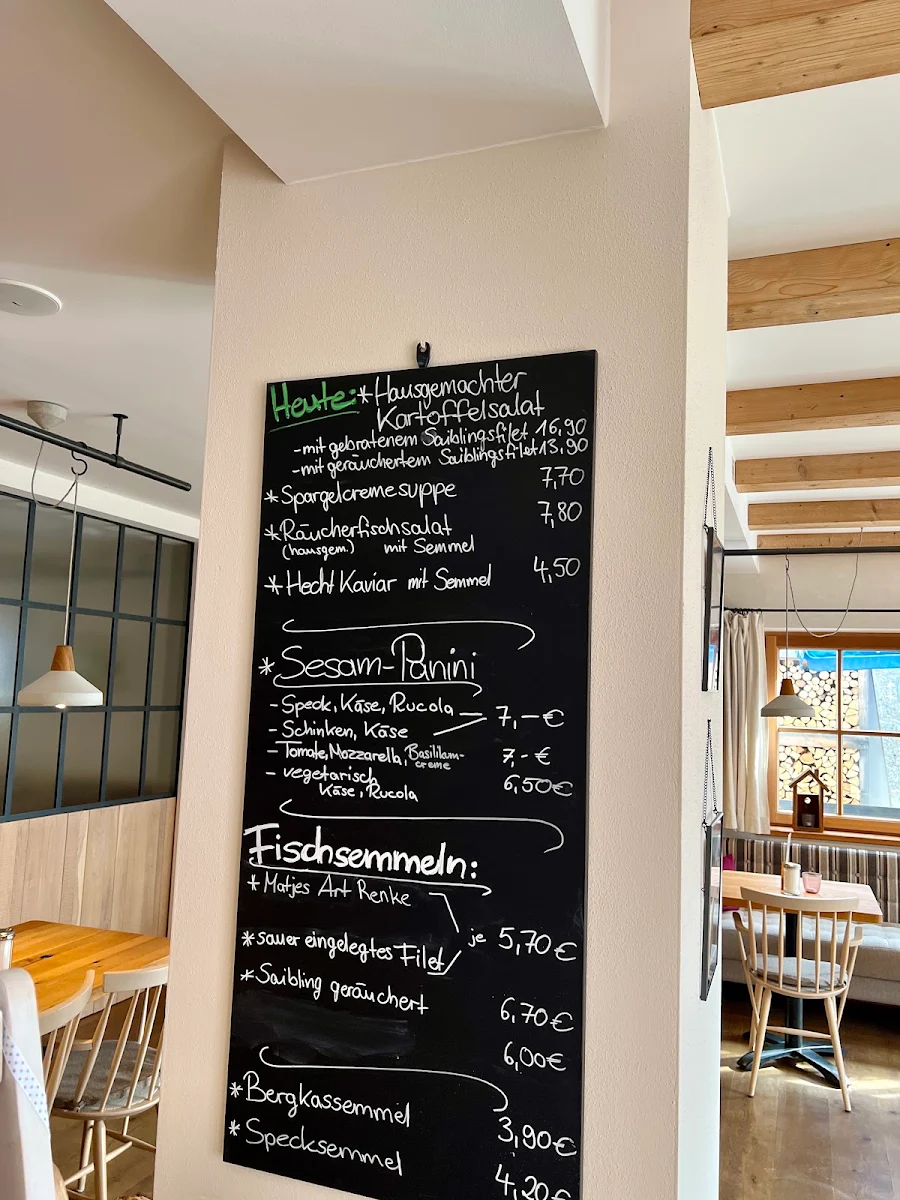 Heute: * Hausgemachter
Kartoffelsalat
- mit gebratenem Saiblingsfilet 16,90
- mit geräuchertem Saiblingsfilet 13,90
* Spargelcremesuppe 7,70
* Räucherfischsalat 7,80
(hausgem.) mit Semmel
* Hecht Kaviar mit Semmel 4,50
* Sesam-Panini
- Speck, Käse, Rucola
- Schinken, Käse 7,-€
- Tomate, Mozzarella, Basilikum-
creme 7,-€
- vegetarisch 6,50€
Käse, Rucola
Fischsemmeln:
* Matjes Art Renke
* sauer eingelegtes Filet je 5,70€
* Saibling geräuchert 6,70€
6,00€
* Bergkassemmel 3,90€
* Specksemmel 4,20€